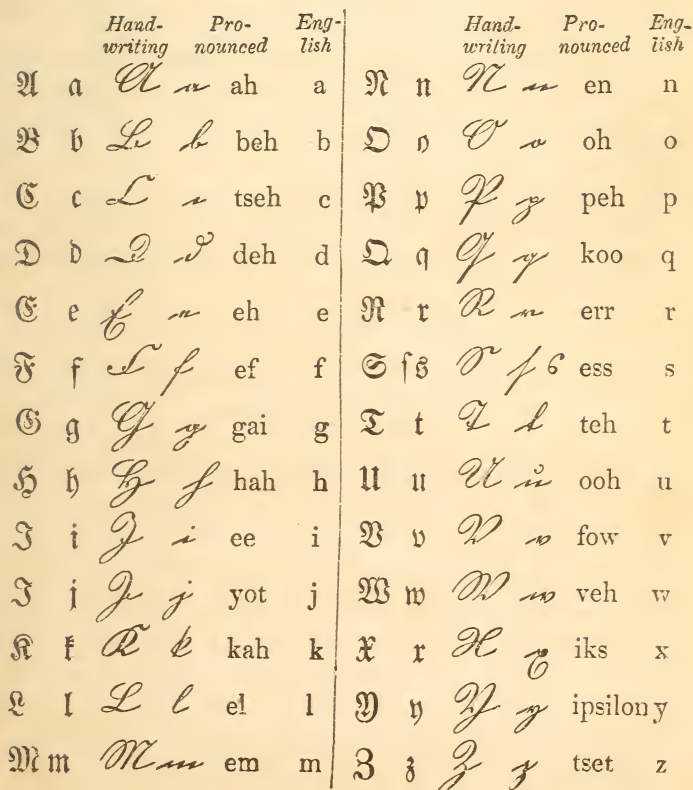 Hand- Pro- Eng-
writing nounced lish
A a A a ah a
B b B b beh b
C c C c tseh c
D d D d deh d
E e E e eh e
F f F f ef f
G g G g gai g
H h H h hah h
I i I i ee i
J j J j yot j
K k K k kah k
L l L l el l
M m M m em m
Hand- Pro- Eng-
writing nounced lish
N n N n en n
O o O o oh o
P p P p peh p
Q q Q q koo q
R r R r err r
S ſs S ſ s ess s
T t T t teh t
U u U u ooh u
V v V v fow v
W w W w veh w
X x X x iks x
Y y Y y ipsilon y
Z z Z z tset z